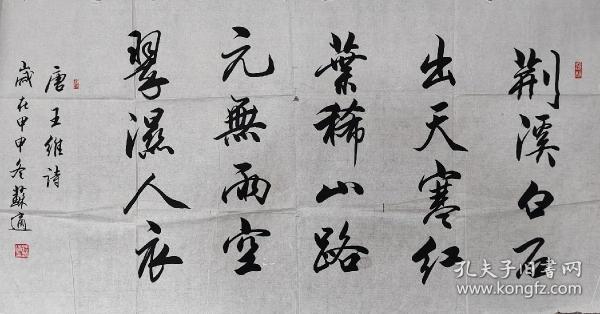 荆溪白石
出天寒红
葉稀山路
元無雨空
翠濕人衣
唐王維詩
歲在甲申冬蘇適
孔夫子旧书网
www.kongfz.com